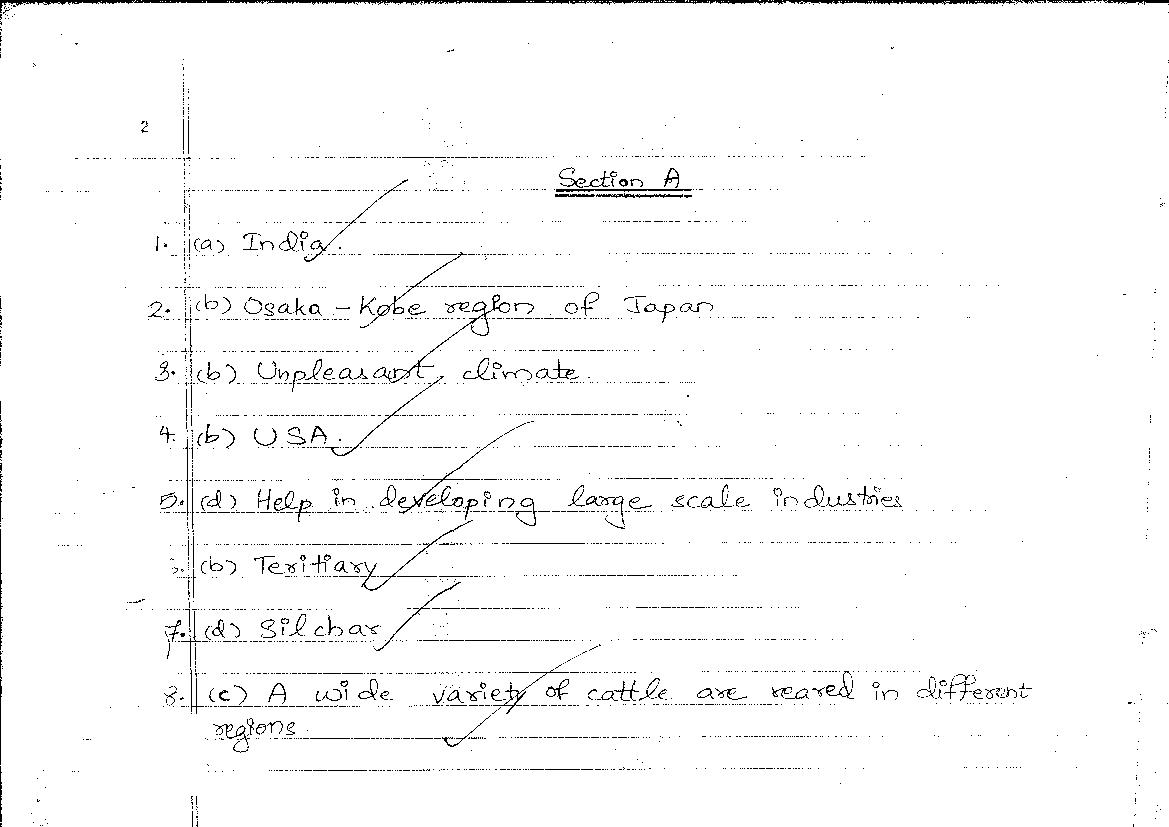 2
Section A
1. (a) India.
2. (b) Osaka - Kobe region of Japan
3. (b) Unpleasant climate.
4. (b) USA.
5. (d) Help in developing large scale industries
(b) Teritiary
7. (d) Silchar
8. (c) A wide variety of cattle are reared in different
regions